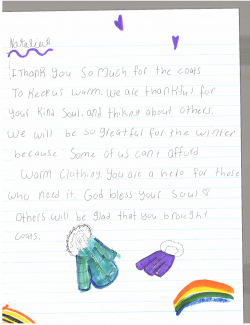 I Thank you so much for the coats
To keep us warm. We are thankful for
your kind soul. and thiking about others.
We will be so greatful for the winter
because some of us can't afford
warm clothing. You are a hero for those
who need it. God bless your soul
others will be glad that you brought
coats.